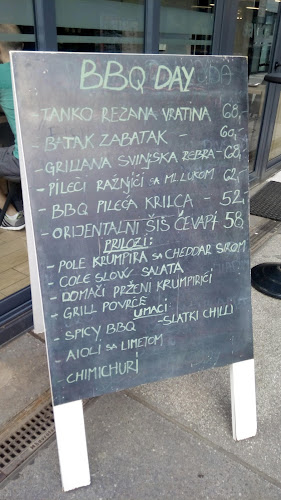 BBQ DAY
- TANKO REZANA VRATINA 68,-
- BATAK ZABATAK - 60,-
- GRILIANA SVINJSKA REBRA - 68,-
- PILEĆI RAŽNJIĆI SA ML. LUKOM 62,-
- BBQ PILEĆA KRILCA - 52,-
- ORIJENTALNI ŠIŠ ĆEVAPI 58,-
PRILOZI:
- POLE KRUMPIRA SA CHEDDAR SIROM
- COLE SLOW SALATA
- DOMAĆI PRŽENI KRUMPIRIĆI
- GRILL POVRĆE
UMACI
- SPICY BBQ - SLATKI CHILLI
- AIOLI SA LIMETOM
- CHIMICHURI